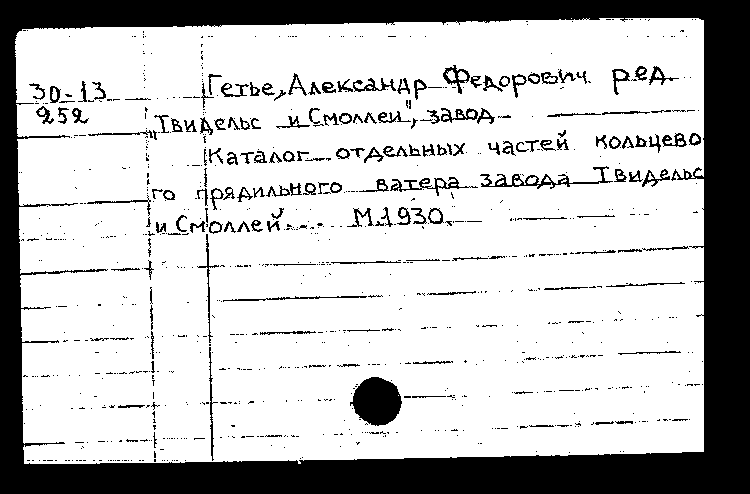 30-13
252
Гетье, Александр Федорович ред.
„Твидельс и Смоллей", завод
Каталог отдельных частей кольцево
го прядильного ватера завода Твидельс
и Смоллей... М.1930.